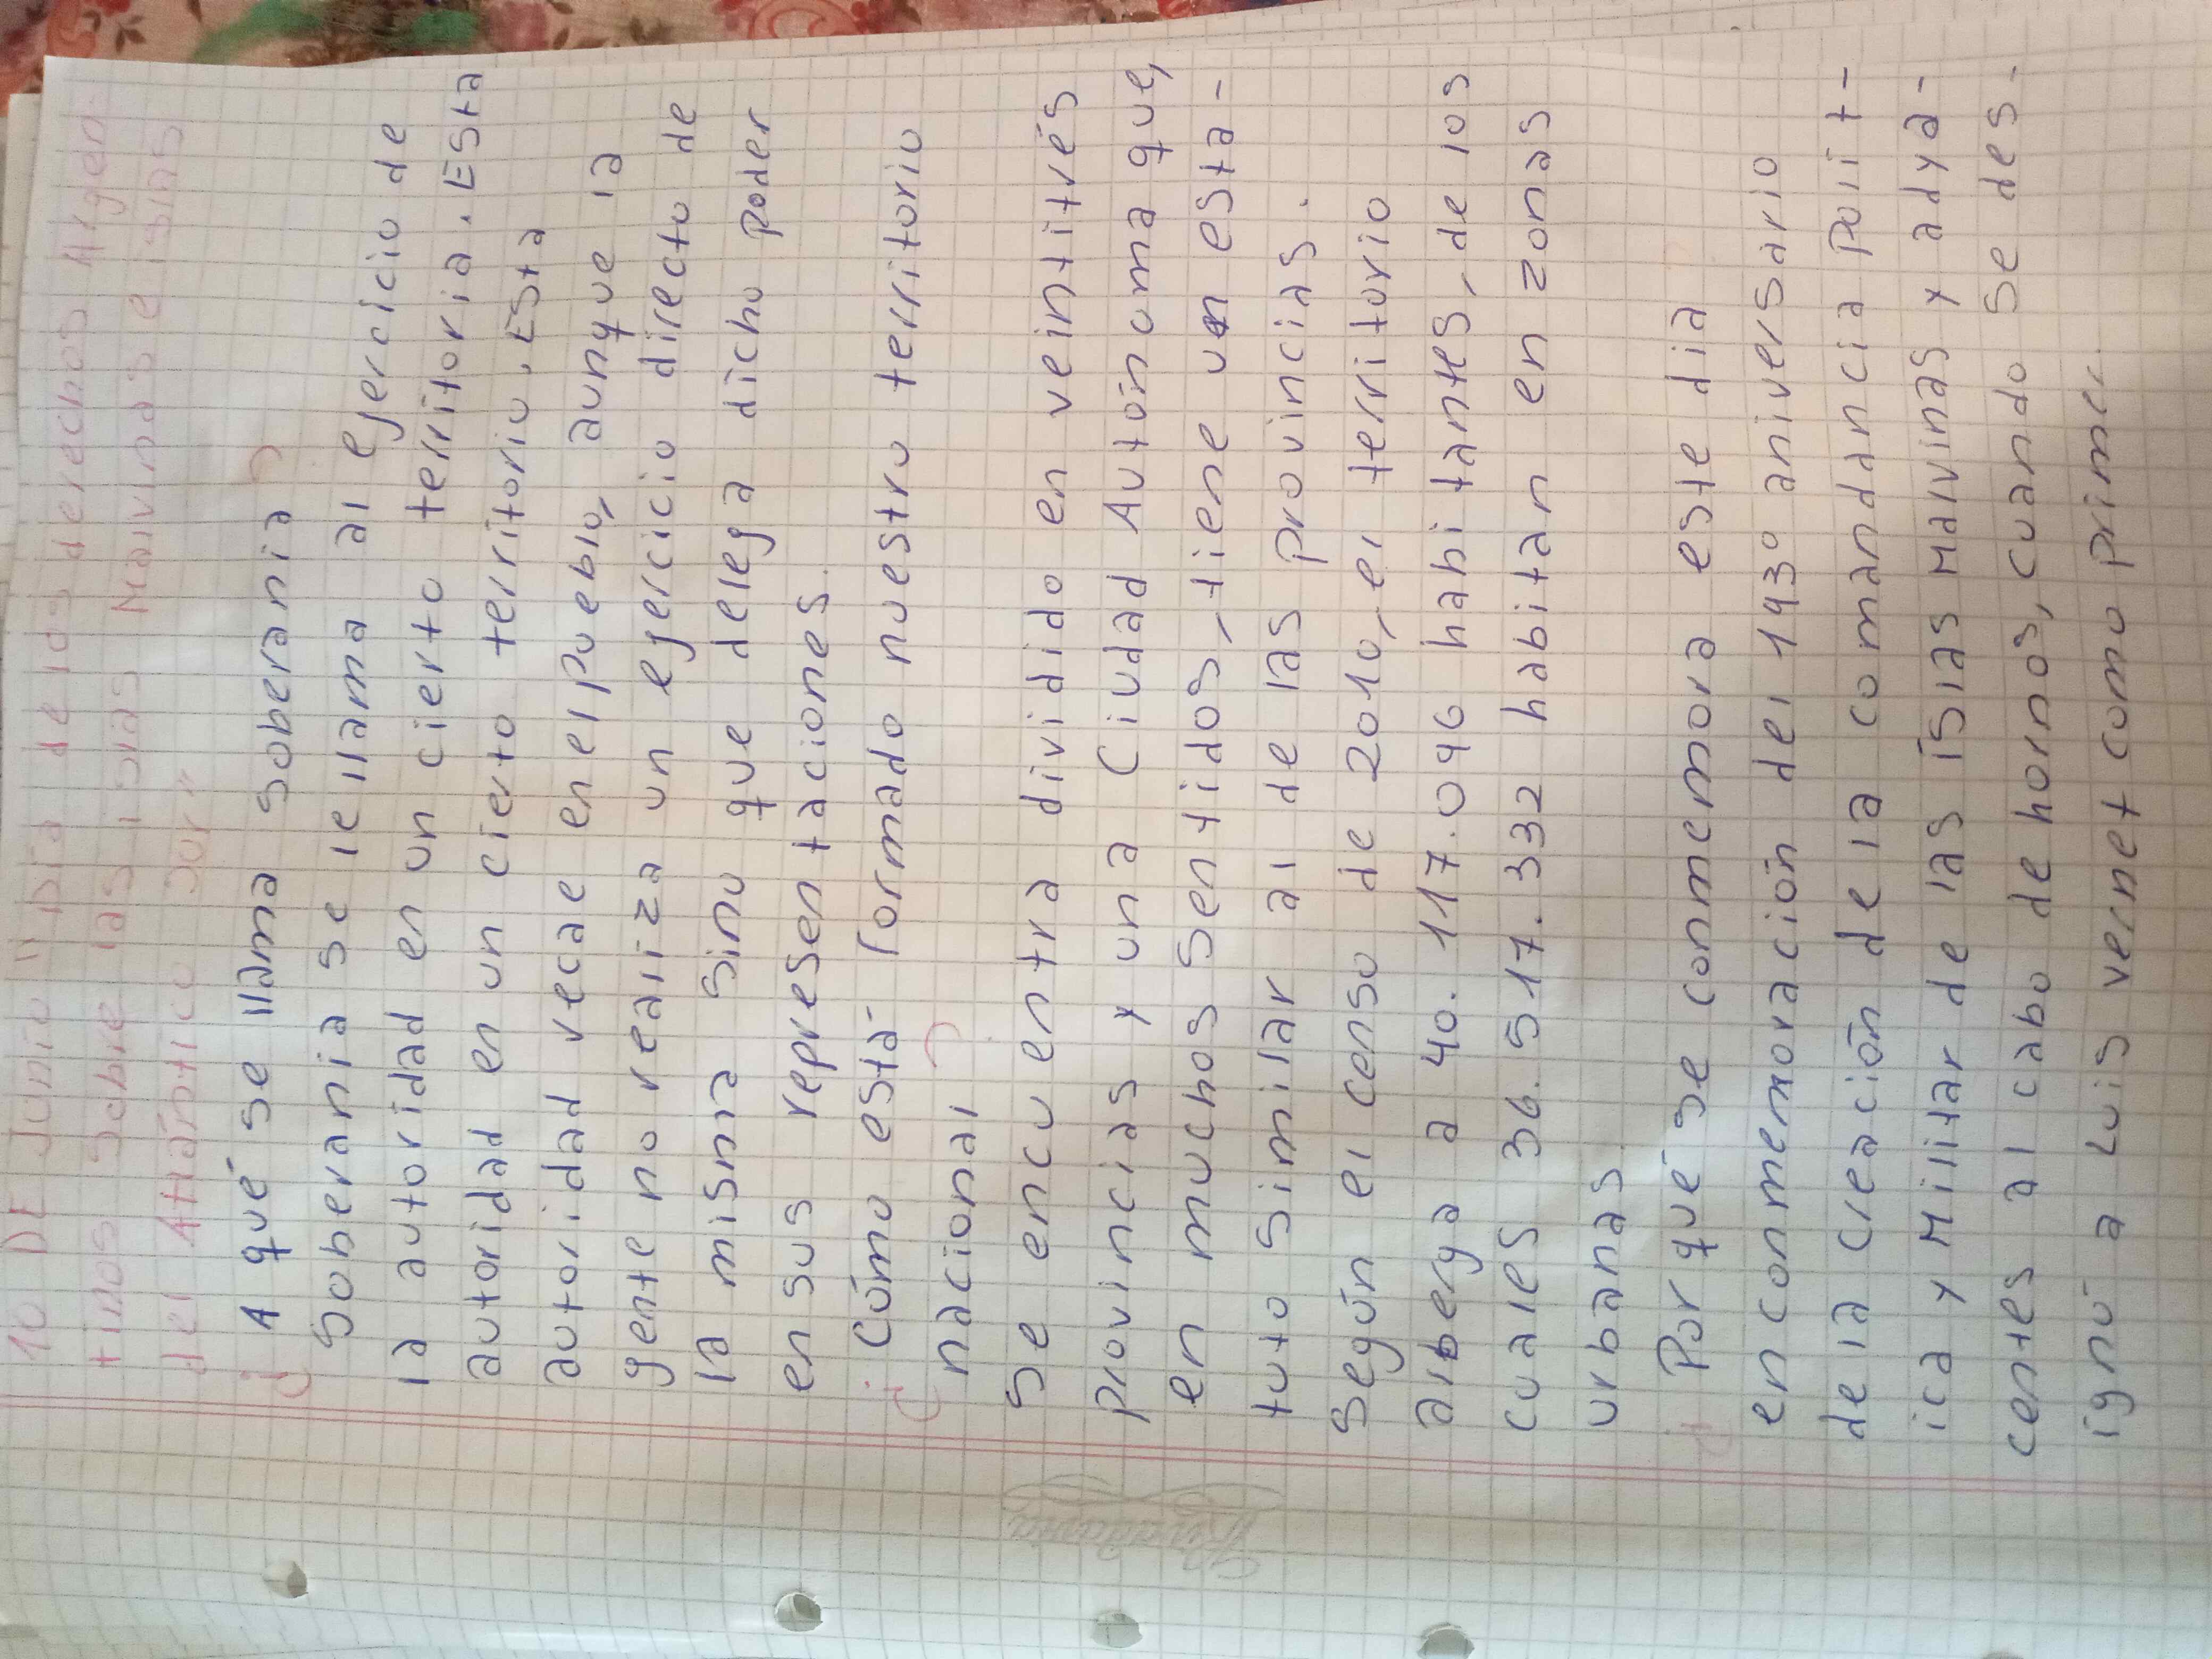 10 DE Junio "Dia de los derechos Argen-
tinos sobre las islas Malvinas e islas
del Atlántico sur"
¿ A qué se llama soberania ?
Soberania se le llama al ejercicio de
la autoridad en un cierto territoria. Esta
autoridad en un cierto territorio. Esta
autoridad recae en el pueblo, aunque la
gente no realiza un ejercicio directo de
la misma sino que delega dicho poder
en sus representaciones.
¿ Cómo está formado nuestro territorio
nacional ?
Se encuentra dividido en veintitrés
provincias y una Ciudad Autónoma que,
en muchos sentidos, tiene un esta-
tuto similar al de las provincias.
Según el censo de 2010, el territorio
alberga a 40.117.096 habitantes, de los
cuales 36.517.332 habitan en zonas
urbanas.
¿ Por qué se conmemora este dia
en conmemoración del 193º aniversario
de la creación de la comandancia Polit-
ica y Militar de las islas Malvinas y adya-
centes al cabo de hornos, cuando se des-
ignó a Luis vernet como primer